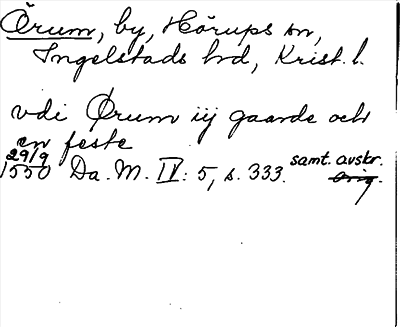 Örum, by, Hörups sn,
Ingelstads hd, Krist. l.
vdi Ørum iij gaarde och
en feste
29/9 1550 Da. M. IV: 5, s. 333. samt. avskr.
orig.